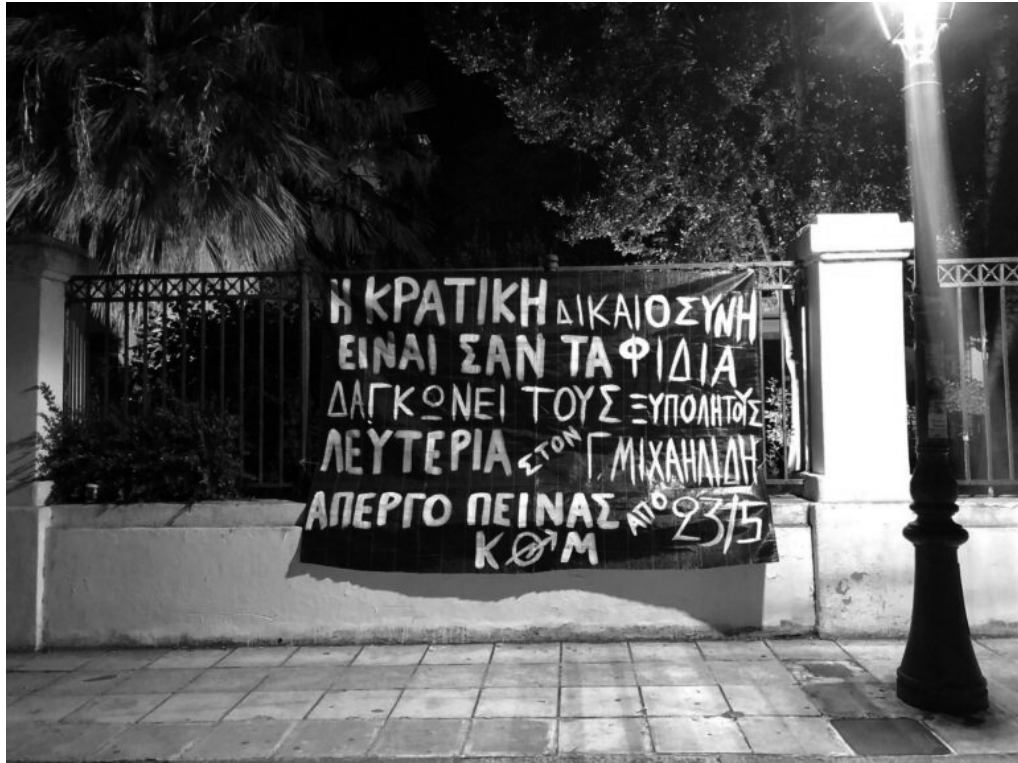 Η ΚΡΑΤΙΚΗ ΔΙΚΑΙΟΣΥΝΗ
ΕΙΝΑΙ ΣΑΝ ΤΑ ΦΙΔΙΑ
ΔΑΓΚΩΝΕΙ ΤΟΥΣ ΞΥΠΟΛΗΤΟΥΣ
ΛΕΥΤΕΡΙΑ ΣΤΟΝ Γ. ΜΙΧΑΗΛΙΔΗ
ΑΠΕΡΓΟ ΠΕΙΝΑΣ ΑΠΟ 23/5
ΚΟΜ